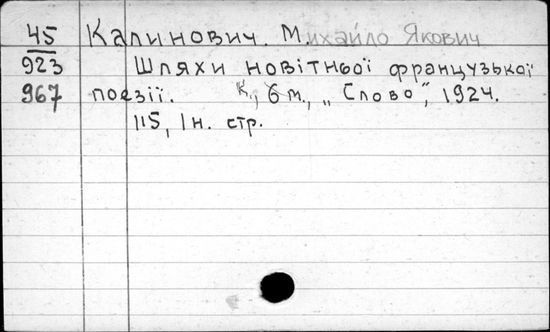 45 Калинович. Михайло Якович
923 Шляхи новітньої французької
967 поезії. К., б м., „Слово", 1924.
115, 1 н. стр.